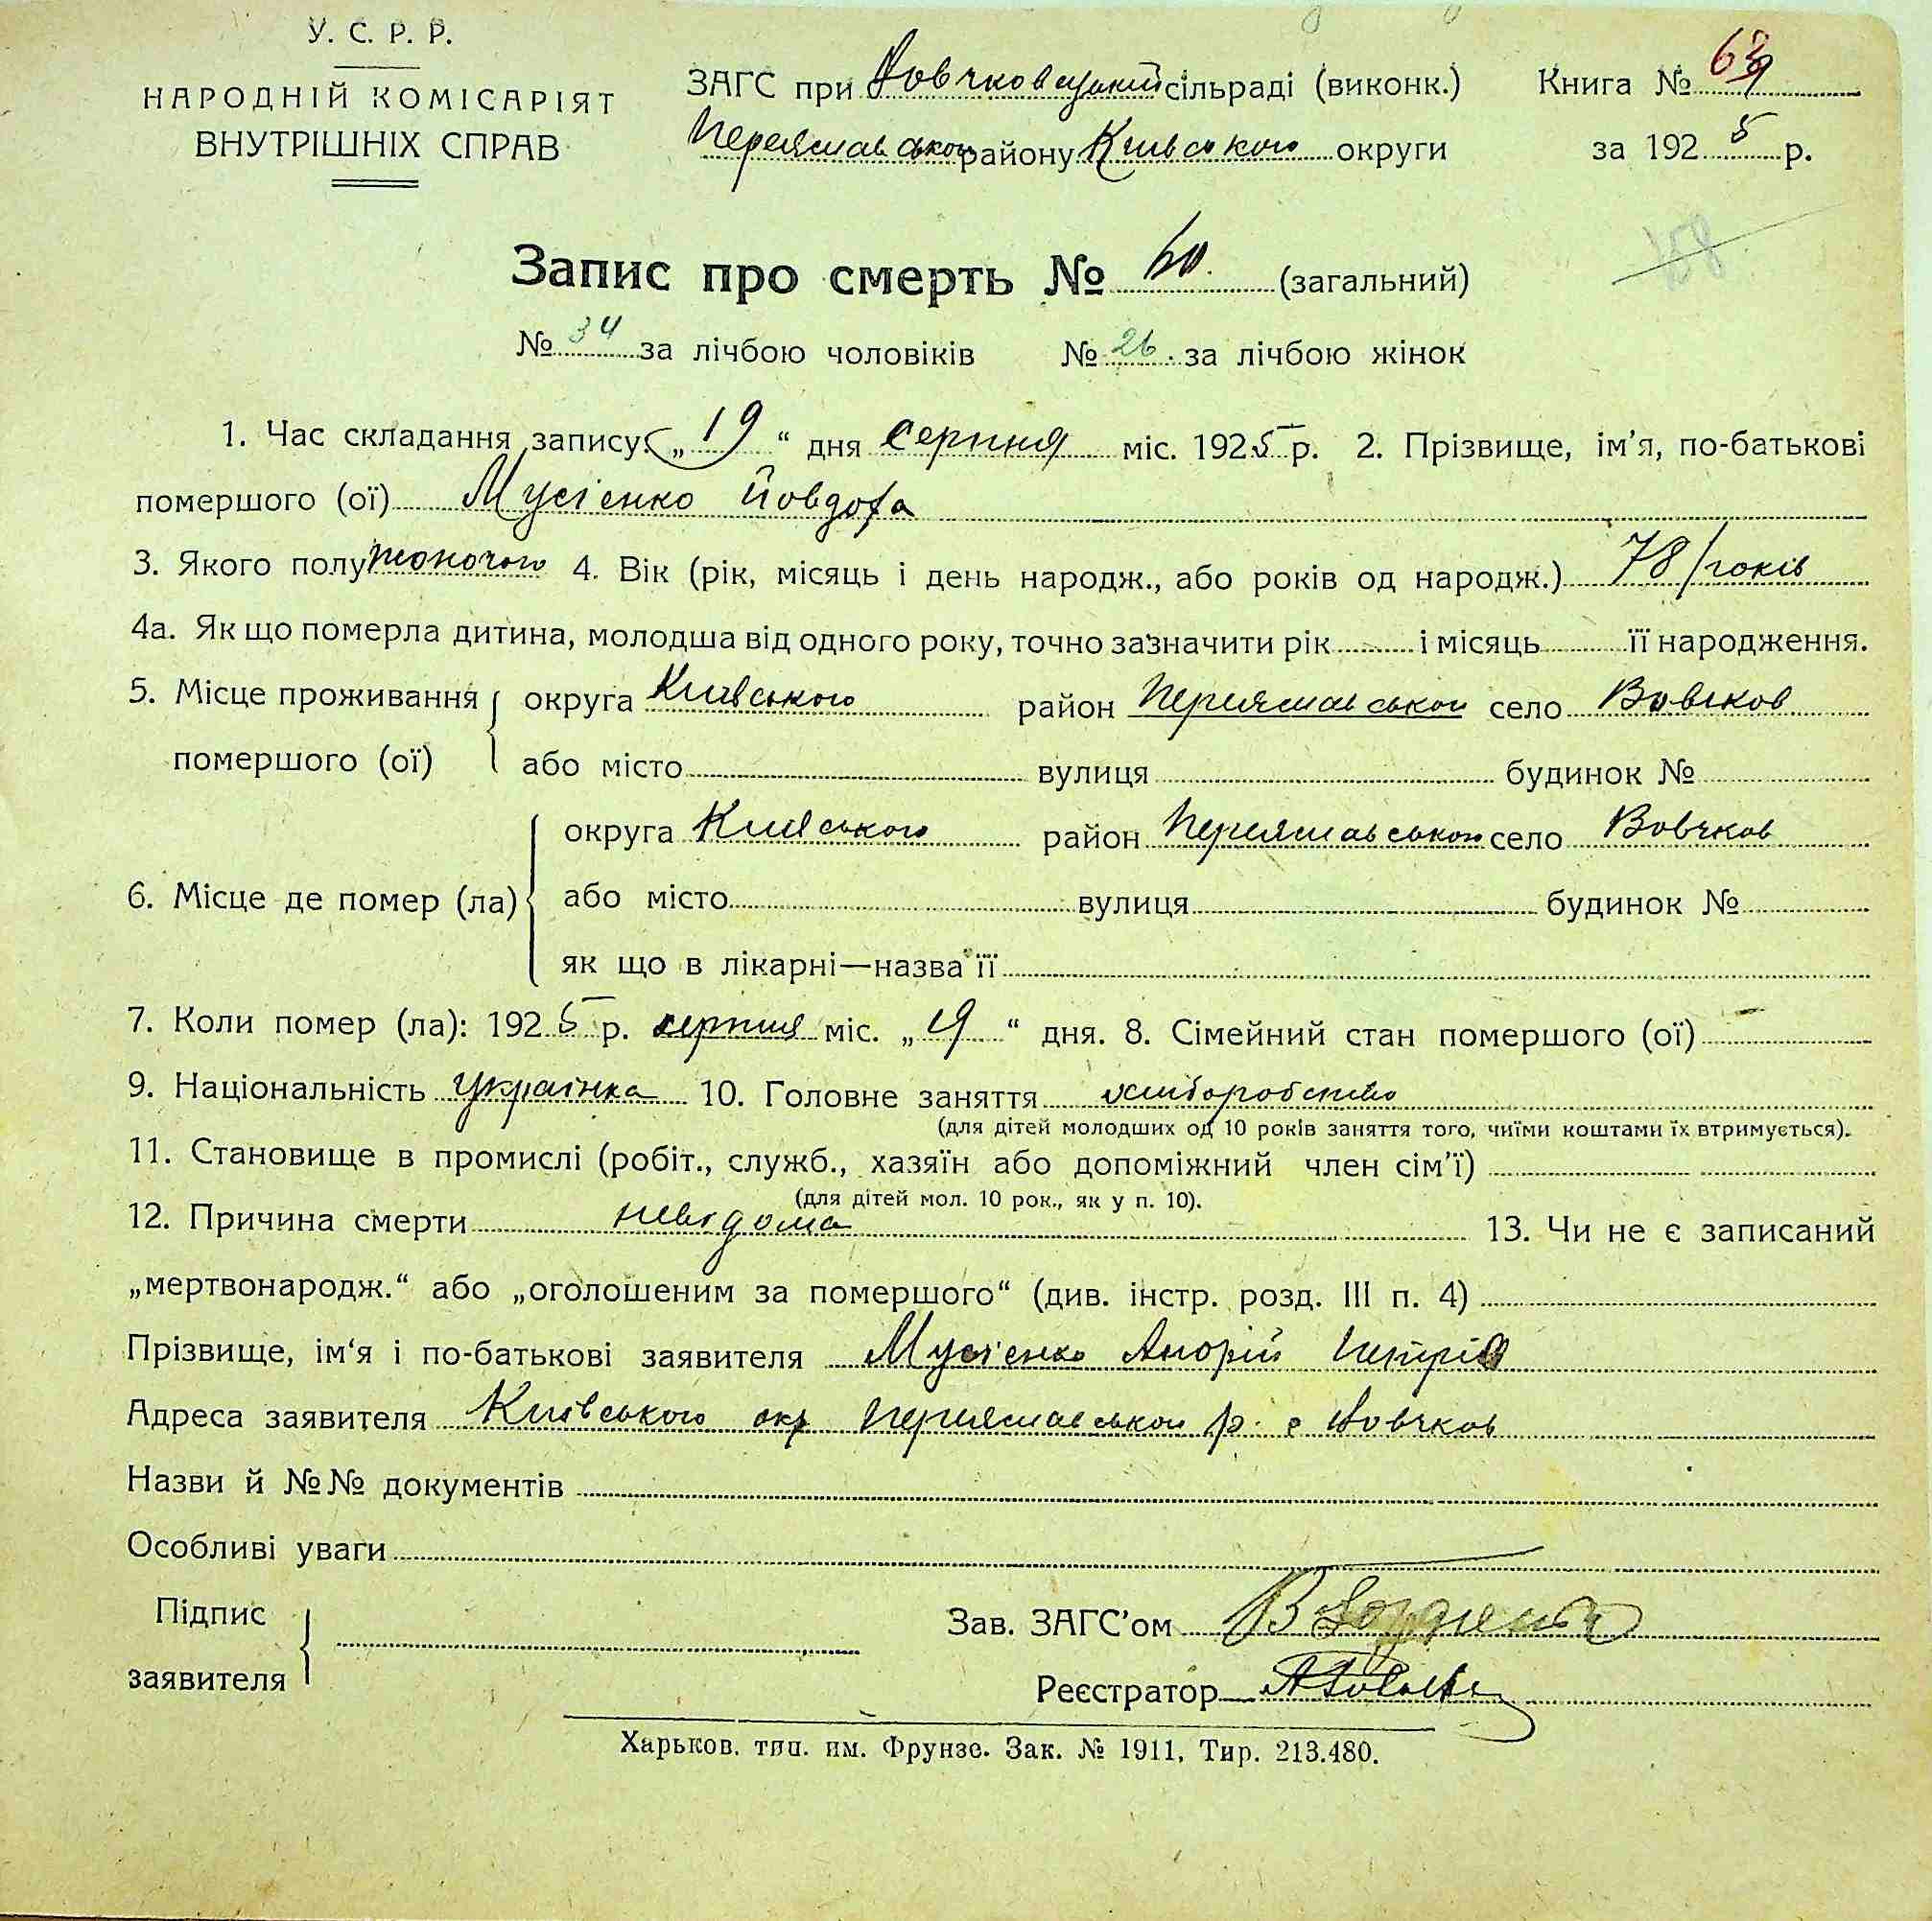 У. С. Р. Р.
НАРОДНІЙ КОМІСАРІЯТ
ВНУТРІШНІХ СПРАВ
ЗАГС при Вовчковецький сільраді (виконк.)
Переяславського району Київського округи
Книга №
за 1925 р.
Запис про смерть № 60. (загальний)
№ 34 за лічбою чоловіків № 26. за лічбою жінок
1. Час складання запису: „19“ дня серпня міс. 1925 р. 2. Прізвище, ім’я, по-батькові
помершого (ої) Мусієнко Йовдоха
3. Якого полу жоночого 4. Вік (рік, місяць і день народж., або років од народж.) 78/років
4а. Як що померла дитина, молодша від одного року, точно зазначити рік і місяць її народження.
5. Місце проживання помершого (ої) округа Київського район Переяславського село Вовчков
або місто вулиця будинок №
6. Місце де помер (ла) округа Київського район Переяславського село Вовчков
або місто вулиця будинок №
як що в лікарні—назва її
7. Коли помер (ла): 1925 р. серпня міс. „19“ дня. 8. Сімейний стан помершого (ої) —
9. Національність Українка 10. Головне заняття хліборобство
(для дітей молодших од 10 років заняття того, чиїми коштами їх втримується).
11. Становище в промислі (робіт., служб., хазяїн або допоміжний член сім’ї)
(для дітей мол. 10 рок., як у п. 10).
12. Причина смерти невідома 13. Чи не є записаний
„мертвонародж.“ або „оголошеним за помершого“ (див. інстр. розд. III п. 4)
Прізвище, ім‘я і по-батькові заявителя Мусієнко Андрій Петрів
Адреса заявителя Київського окр Переяславського р. с Вовчков
Назви й №№ документів
Особливі уваги
Підпис заявителя
Зав. ЗАГС’ом
Реєстратор
Харьков. тип. им. Фрунзе. Зак. № 1911, Тир. 213.480.